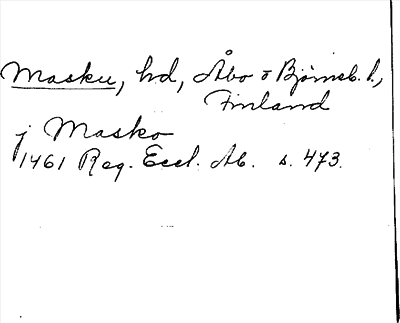 Masku, hd, Åbo o Björneb. l.,
Finland
j Masko
1461 Reg. Eccl. Ab. s. 473.